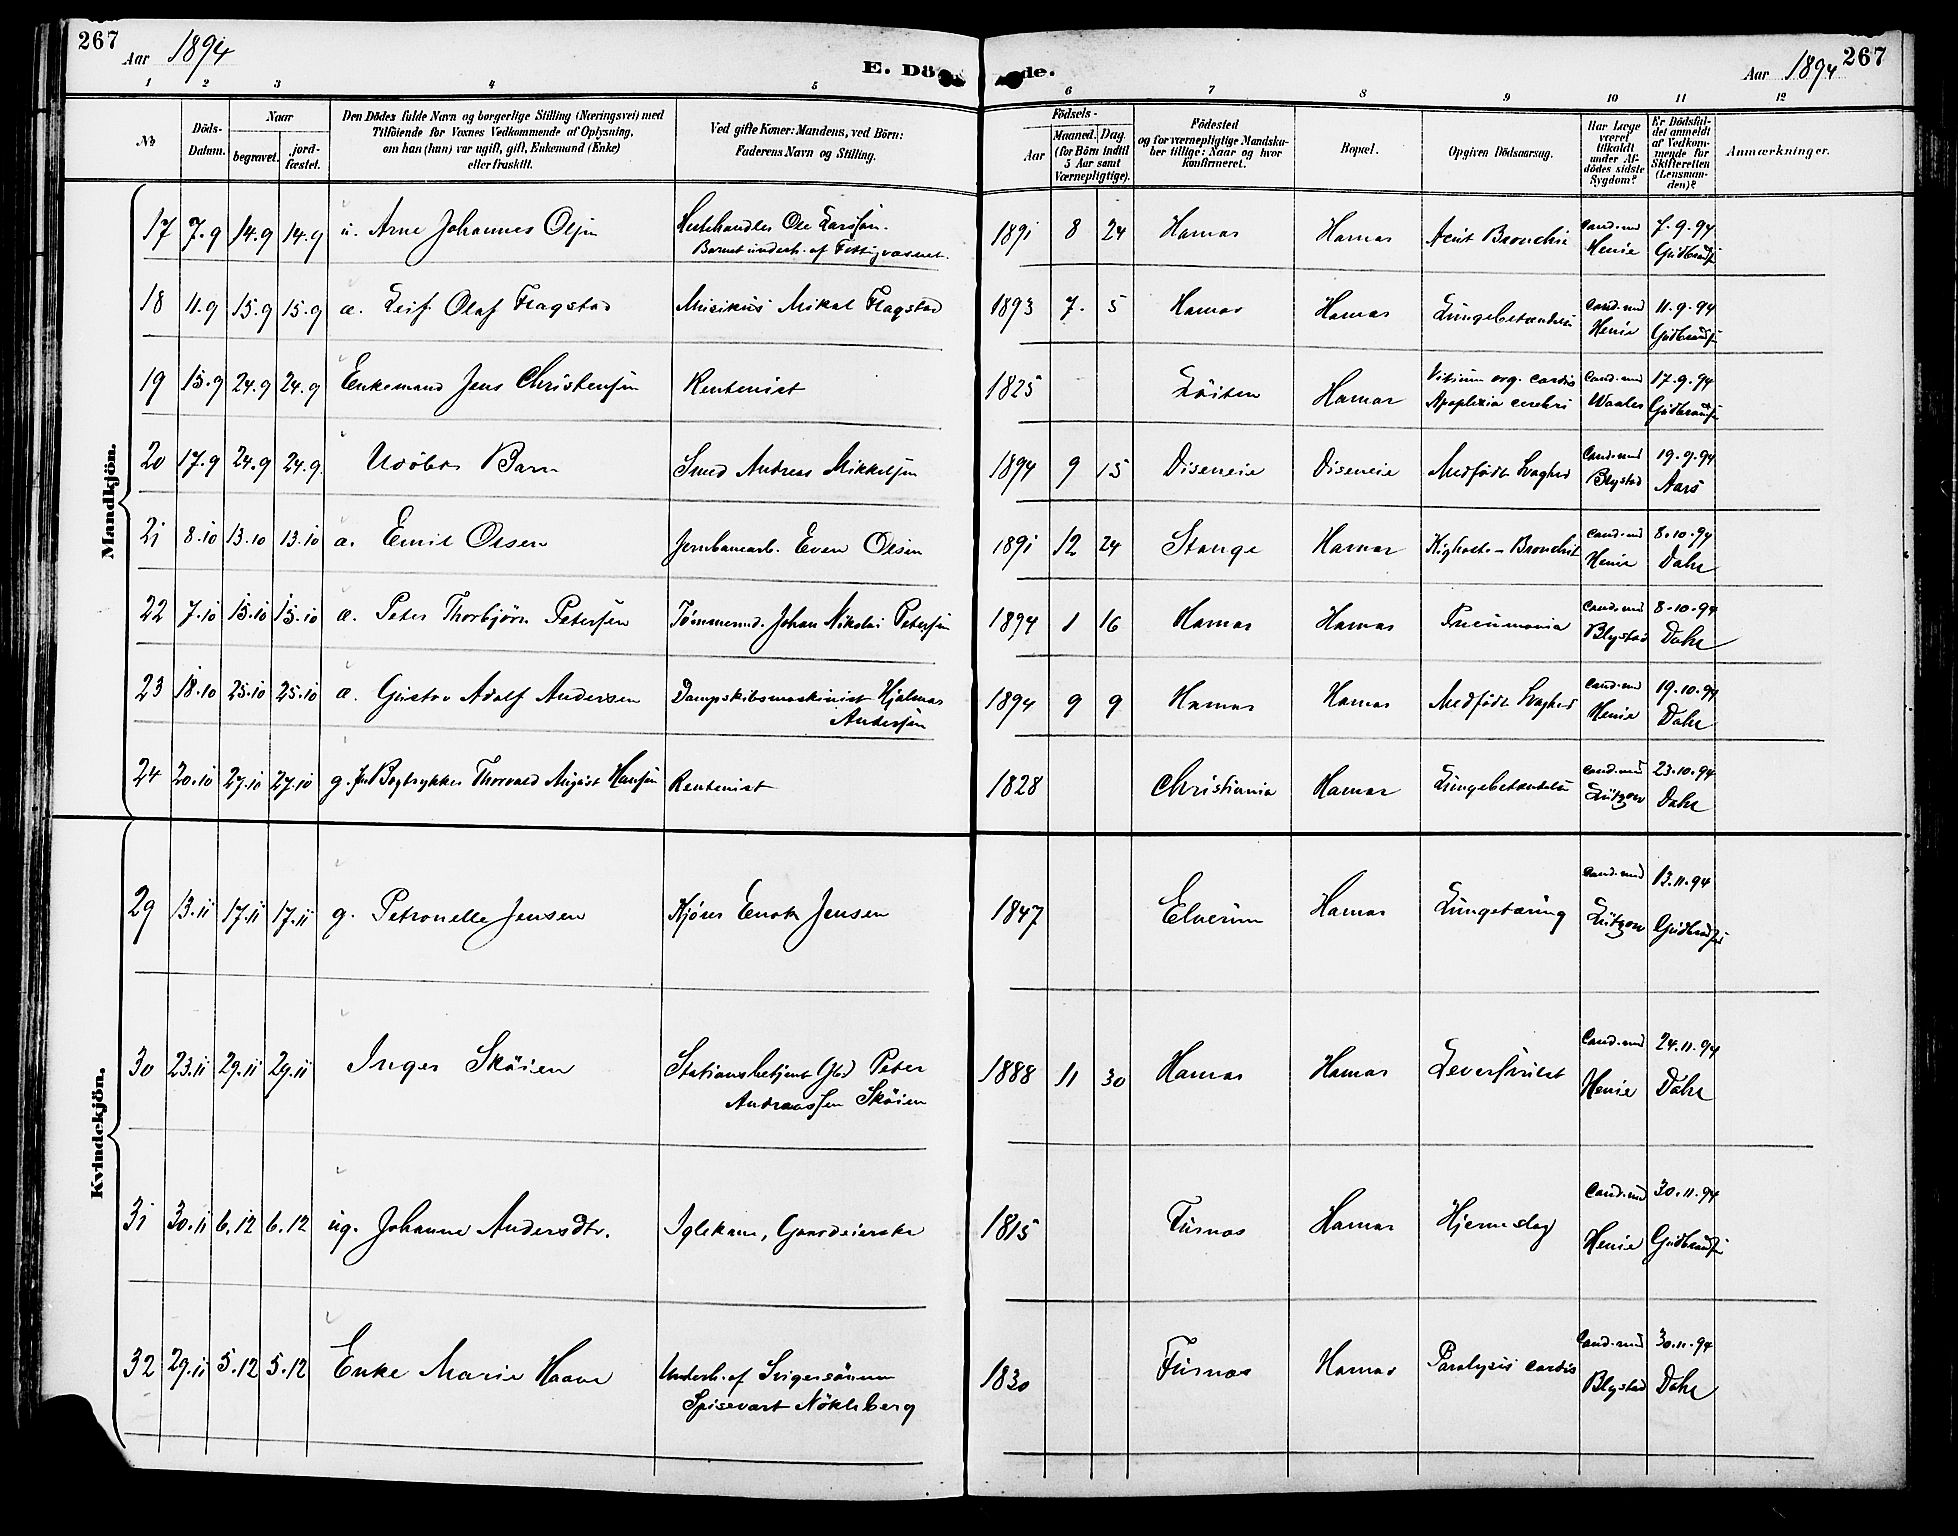 267
Aar 1894
E. Dö de.
Aar 1894
267
1 2 3 4 5 6 7 8 9 10 11 12
No
Döds-Datum.
Naar
begravet.
jord-fæstet.
Den Dödes fulde Navn og borgerlige Stilling (Næringsvei) med
Tilföiende for Voxnes Vedkommende af Oplysning,
om han (hun) var ugift, gift, Enkemand (Enke)
eller fraskilt.
Ved gifte Koner: Mandens, ved Börn:
Faderens Navn og Stilling.
Födsels-
Aar
Maaned. Dag.
(for Börn indtil
5 Aar samt
Værnepligtige).
Födested
og for værnepligtige Mandskaber tillige: Naar og hvor
konfirmeret.
Bopæl.
Opgiven Dödsaarsag.
Har Læge
været
tilkaldt
under Afdödes sidste
Sygdom?
Er Dödsfaldet anmeldt
af Vedkommende for
Skifteretten
(Lensmanden)?
Anmærkninger.
Mandkjön.
17 7.9 14.9 14.9 u. Arne Johannes Olsen Hestehandler Ole Larssen. 1891 8 24 Hamar Hamar Acut Bronchit cand.med 7.9.94
Barnet underh. af Fattigvæsnet. Henie Gudbrandsen
18 11.9 15.9 15.9 a. Leif Olaf Flagstad Musikus Mikal Flagstad 1893 7. 5 Hamar Hamar Lungebetændelse cand.med 11.9.94
Henie Gudbrandsen
19 15.9 24.9 24.9 Enkemand Jens Christensen Rentenist 1825 Löiten Hamar Vitium org. cordis cand.med 17.9.94
Apoplexia cerebri Waaler Gudbrandsen
20 17.9 24.9 24.9. Udöbt Barn Smed Andreas Mikkelsen 1894 9 15 Diseneie Diseneie Medfödt Svaghed cand.med 19.9.94
Blystad Aars
21 8.10 13.10 13.10 a. Emil Olsen Jernbanearb. Even Olsen 1891 12 24 Stange Hamar Kighoste - Bronchit cand.med 8.10.94
Henie Dahl
22 7.10 15.10 15.10 a. Peter Thorbjörn Petersen Tömmermd. Johan Nikolai Petersen 1894 1 16 Hamar Hamar Pneumonia cand.med 8-10.94
Blystad Dahl
23 18.10 25.10 25.10 a. Gustav Adolf Andersen Dampskibsmaskinist Hjalmar 1894 9 9 Hamar Hamar Medfödt Svaghed cand.med 19.10.94
Andersen Henie Dahl
24 20.10 27.10 27.10 g. Bogtrykker Thorvald August Hansen Rentenist 1828 Christiania Hamar Lungebetændelse cand.med 23.10.94
Lützow Dahl
Kvindekjön.
29 13.11 17.11 17.11 g. Petronelle Jensen Kjörer Enok Jensen 1847 Elverum Hamar Lungetæring cand.med 13.11.94
Lützow Gudbrandsen
30 23.11 29.11 29.11 Inger Sköien Stationsbetjent Peter 1888 11 30 Hamar Hamar Leversvulst cand.med 24.11.94
Andreassen Sköien Henie Dahl
31 30.11 6.12 6.12 ug. Johanne Andersdtr. Iglekone, Gaardeierske 1815 Furnes Hamar Hjerneslag cand.med 30.11.94
Henie Gudbrandsen
32 29.11 5.12 5.12 Enke Marie Haave Underh. af Svigersönnen 1830 Furnes Hamar Paralysis cordis cand.med 30.11.94
Spisevært Nökleberg Blystad Dahl
267